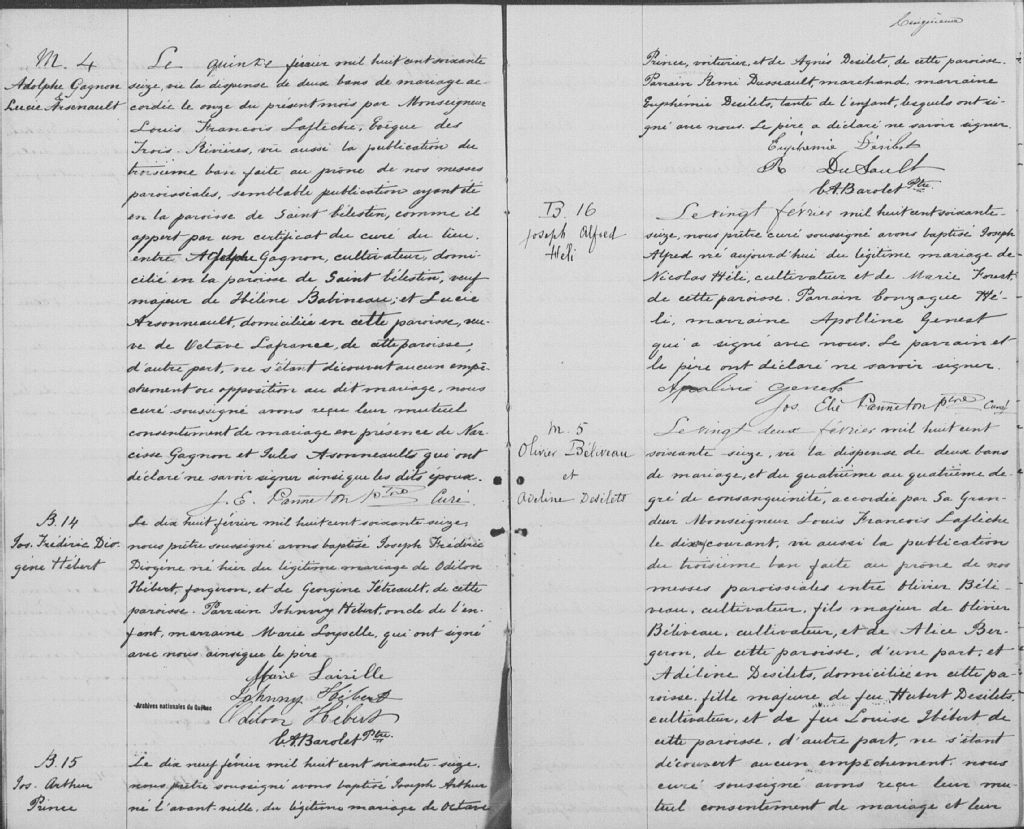 M. 4
Adolphe Gagnon
&
Lucie Arsenault
Le quinze février mil huit cent soixante
seize, vu la dispense de deux bans de mariage ac-
cordée le onze du présent mois par Monseigneur
Louis François Laflèche, Evêque des
Trois-Rivières, vu aussi la publication du
troisième ban faite au prône de nos messes
paroissiales, semblable publication ayant été
en la paroisse de Saint Célestin, comme il
appert par un certificat du curé du lieu.
entre Adolphe Gagnon, cultivateur, domi-
cilié en la paroisse de Saint Célestin, veuf
majeur de Hélène Babineau, et Lucie
Arsonneault, domiciliée en cette paroisse, veu-
ve de Octave Lafrance, de cette paroisse,
d'autre part, ne s'étant découvert aucun empê-
chement ou opposition au dit mariage, nous
curé soussigné avons reçu leur mutuel
consentement de mariage en présence de Nar-
cisse Gagnon et Jules Asonneault qui ont
déclaré ne savoir signer ainsi que les dits époux.
J. E. Panneton ptre Curé
B. 14
Jos. Frédéric Dio-
gène Hébert
Le dix huit février mil huit cent soixante seize,
nous prêtre soussigné avons baptisé Joseph Frédéric
Diogène né hier du légitime mariage de Odilon
Hébert, forgeron, et de Georgine Tétreault, de cette
paroisse. Parrain Johnny Hébert, oncle de l'en-
fant, marraine Marie Loyselle, qui ont signé
avec nous ainsi que le père
Marie Loiselle
Johnny Hébert
Odilon Hébert
C.A. Barolet Ptre.
Archives nationales du Québec
B. 15
Jos. Arthur
Prince
Le dix neuf février mil huit cent soixante-seize,
nous prêtre soussigné avons baptisé Joseph Arthur
né l'avant-veille, du légitime mariage de Octave
Cinquième
Prince, voiturier, et de Agnès Desilets, de cette paroisse.
Parrain Remi Dusseault, marchand, marraine
Euphémie Desilets, tante de l'enfant, lesquels ont si-
gné avec nous. Le père a déclaré ne savoir signer.
Euphémie Désilets
R DuSault
C.A. Barolet Ptre.
B. 16
Joseph Alfred
Héli
Le vingt février mil huit cent soixante-
seize, nous prêtre curé soussigné avons baptisé Joseph
Alfred né aujourd'hui du légitime mariage de
Nicolas Héli, cultivateur et de Marie Forest,
de cette paroisse. Parrain Gonzague Hé-
li, marraine Apolline Genest
qui a signé avec nous. Le parrain et
le père ont déclaré ne savoir signer.
Apoline Genest
Jos. Elie Panneton ptre Curé
M. 5
Olivier Béliveau
et
Adeline Desilets
Le vingt deux février mil huit cent
soixante-seize, vu la dispense de deux bans
de mariage, et du quatrième au quatrième de-
gré de consanguinité, accordée par Sa Gran-
deur Monseigneur Louis François Laflèche
le dix courant, vu aussi la publication
du troisième ban faite au prône de nos
messes paroissiales entre Olivier Béli-
veau, cultivateur, fils majeur de Olivier
Béliveau, cultivateur, et de Alice Ber-
geron, de cette paroisse, d'une part, et
Adéline Desilets, domiciliée en cette pa-
roisse, fille majeure de feu Hubert Desilets,
cultivateur, et de feu Louise Hébert de
cette paroisse, d'autre part, ne s'étant
découvert aucun empêchement, nous
curé soussigné avons reçu leur mu-
tuel consentement de mariage et leur